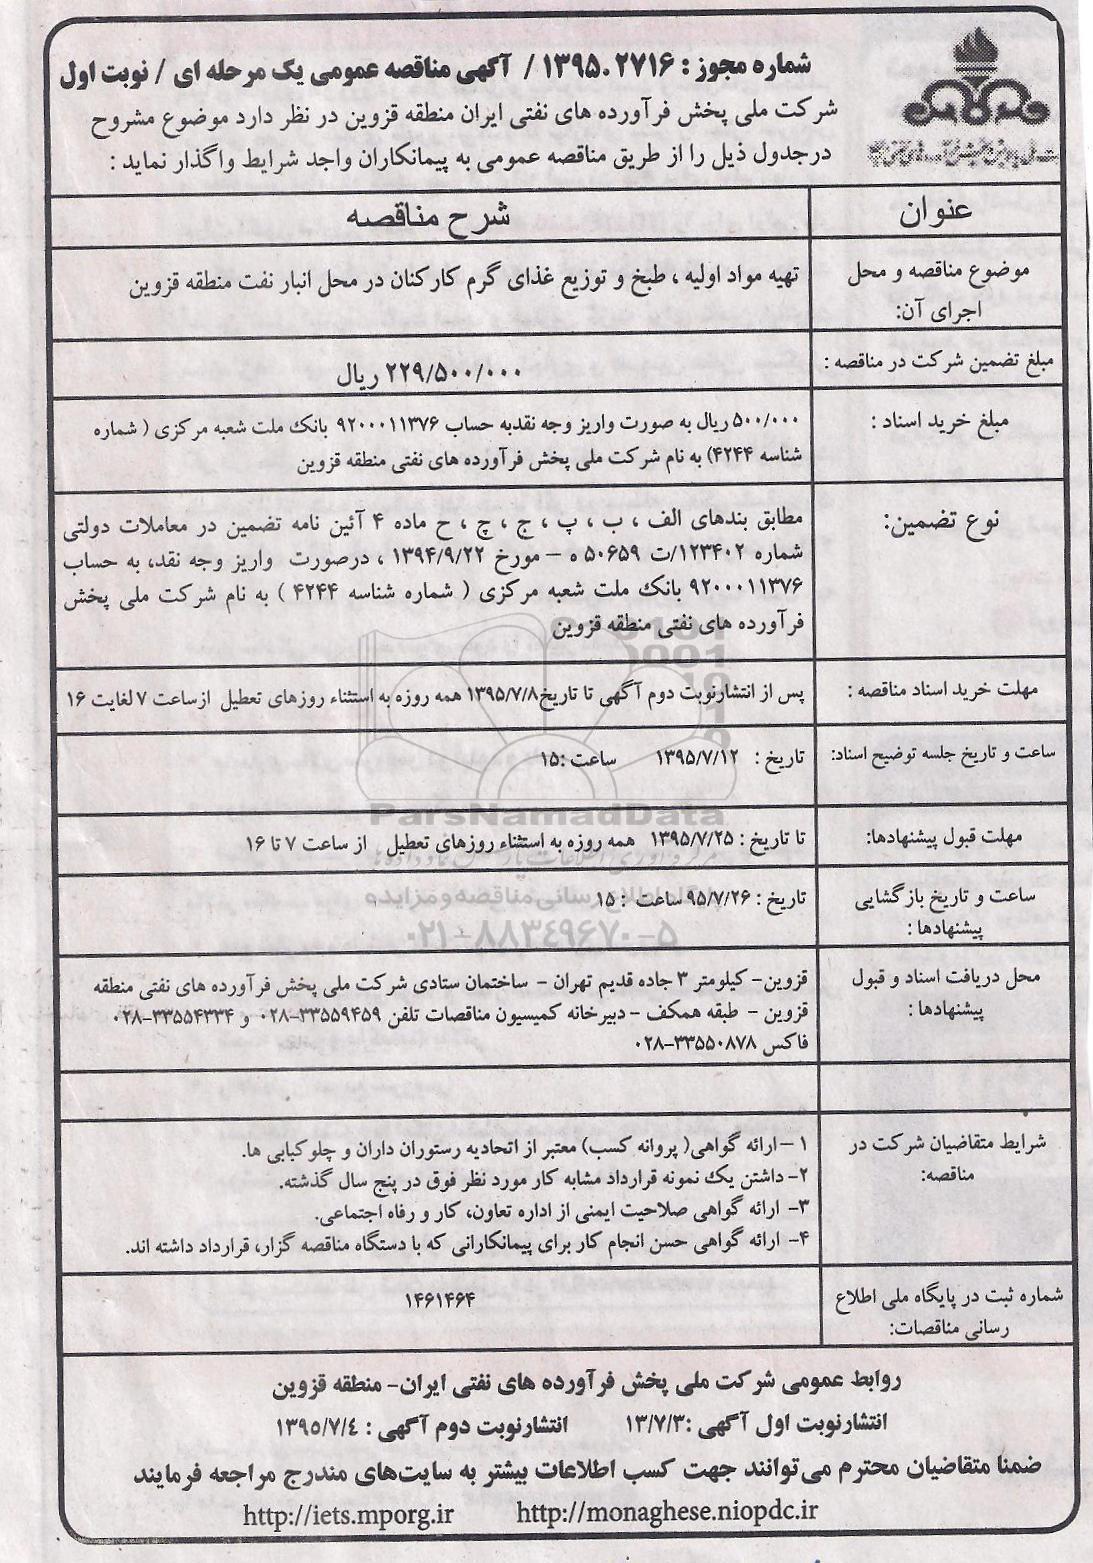 شماره مجوز : ۱۳۹۵.۲۷۱۶ / آگهی مناقصه عمومی یک مرحله ای / نوبت اول
شرکت ملی پخش فرآورده های نفتی ایران منطقه قزوین در نظر دارد موضوع مشروح
درجدول ذیل را از طریق مناقصه عمومی به پیمانکاران واجد شرایط واگذار نماید :
عنوان
شرح مناقصه
موضوع مناقصه و محل
اجرای آن:
تهیه مواد اولیه ، طبخ و توزیع غذای گرم کارکنان در محل انبار نفت منطقه قزوین
مبلغ تضمین شرکت در مناقصه :
۲۲۹/۵۰۰/۰۰۰ ریال
مبلغ خرید اسناد :
۵۰۰/۰۰۰ ریال به صورت واریز وجه نقدبه حساب ۹۲۰۰۰۱۱۳۷۶ بانک ملت شعبه مرکزی ( شماره
شناسه ۴۲۴۴) به نام شرکت ملی پخش فرآورده های نفتی منطقه قزوین
نوع تضمین:
مطابق بندهای الف ، ب ، پ ، ج ، چ ، ح ماده ۴ آئین نامه تضمین در معاملات دولتی
شماره ۱۲۳۴۰۲/ت ۵۰۶۵۹ ه – مورخ ۱۳۹۴/۹/۲۲ ، درصورت واریز وجه نقد، به حساب
۹۲۰۰۰۱۱۳۷۶ بانک ملت شعبه مرکزی ( شماره شناسه ۴۲۴۴ ) به نام شرکت ملی پخش
فرآورده های نفتی منطقه قزوین
مهلت خرید اسناد مناقصه :
پس از انتشارنوبت دوم آگهی تا تاریخ۱۳۹۵/۷/۸ همه روزه به استثناء روزهای تعطیل ازساعت ۷ لغایت ۱۶
ساعت و تاریخ جلسه توضیح اسناد:
تاریخ : ۱۳۹۵/۷/۱۲ ساعت :۱۵
ParsNamadData
مهلت قبول پیشنهادها:
تا تاریخ : ۱۳۹۵/۷/۲۵ همه روزه به استثناء روزهای تعطیل از ساعت ۷ تا ۱۶
ساعت و تاریخ بازگشایی
پیشنهادها :
تاریخ : ۹۵/۷/۲۶ ساعت : ۱۵
پایگاه اطلاع رسانی مناقصه و مزایده
۰۲۱-۸۸۳۴۹۶۷۰-۵
محل دریافت اسناد و قبول
پیشنهادها :
قزوین- کیلومتر ۳ جاده قدیم تهران - ساختمان ستادی شرکت ملی پخش فرآورده های نفتی منطقه
قزوین - طبقه همکف - دبیرخانه کمیسیون مناقصات تلفن ۳۳۵۵۹۴۵۹-۰۲۸ و ۳۳۵۵۴۳۳۴-۰۲۸
فاکس ۳۳۵۵۰۸۷۸-۰۲۸
شرایط متقاضیان شرکت در
مناقصه:
۱ –ارائه گواهی( پروانه کسب) معتبر از اتحادیه رستوران داران و چلوکبابی ها.
۲- داشتن یک نمونه قرارداد مشابه کار مورد نظر فوق در پنج سال گذشته.
۳- ارائه گواهی صلاحیت ایمنی از اداره تعاون، کار و رفاه اجتماعی.
۴- ارائه گواهی حسن انجام کار برای پیمانکارانی که با دستگاه مناقصه گزار، قرارداد داشته اند.
شماره ثبت در پایگاه ملی اطلاع
رسانی مناقصات:
۱۴۶۱۴۶۴
روابط عمومی شرکت ملی پخش فرآورده های نفتی ایران- منطقه قزوین
انتشارنوبت اول آگهی :۱۳/۷/۳ انتشارنوبت دوم آگهی : ۱۳۹۵/۷/٤
ضمنا متقاضیان محترم می‌توانند جهت کسب اطلاعات بیشتر به سایت‌های مندرج مراجعه فرمایند
http://iets.mporg.ir http://monaghese.niopdc.ir